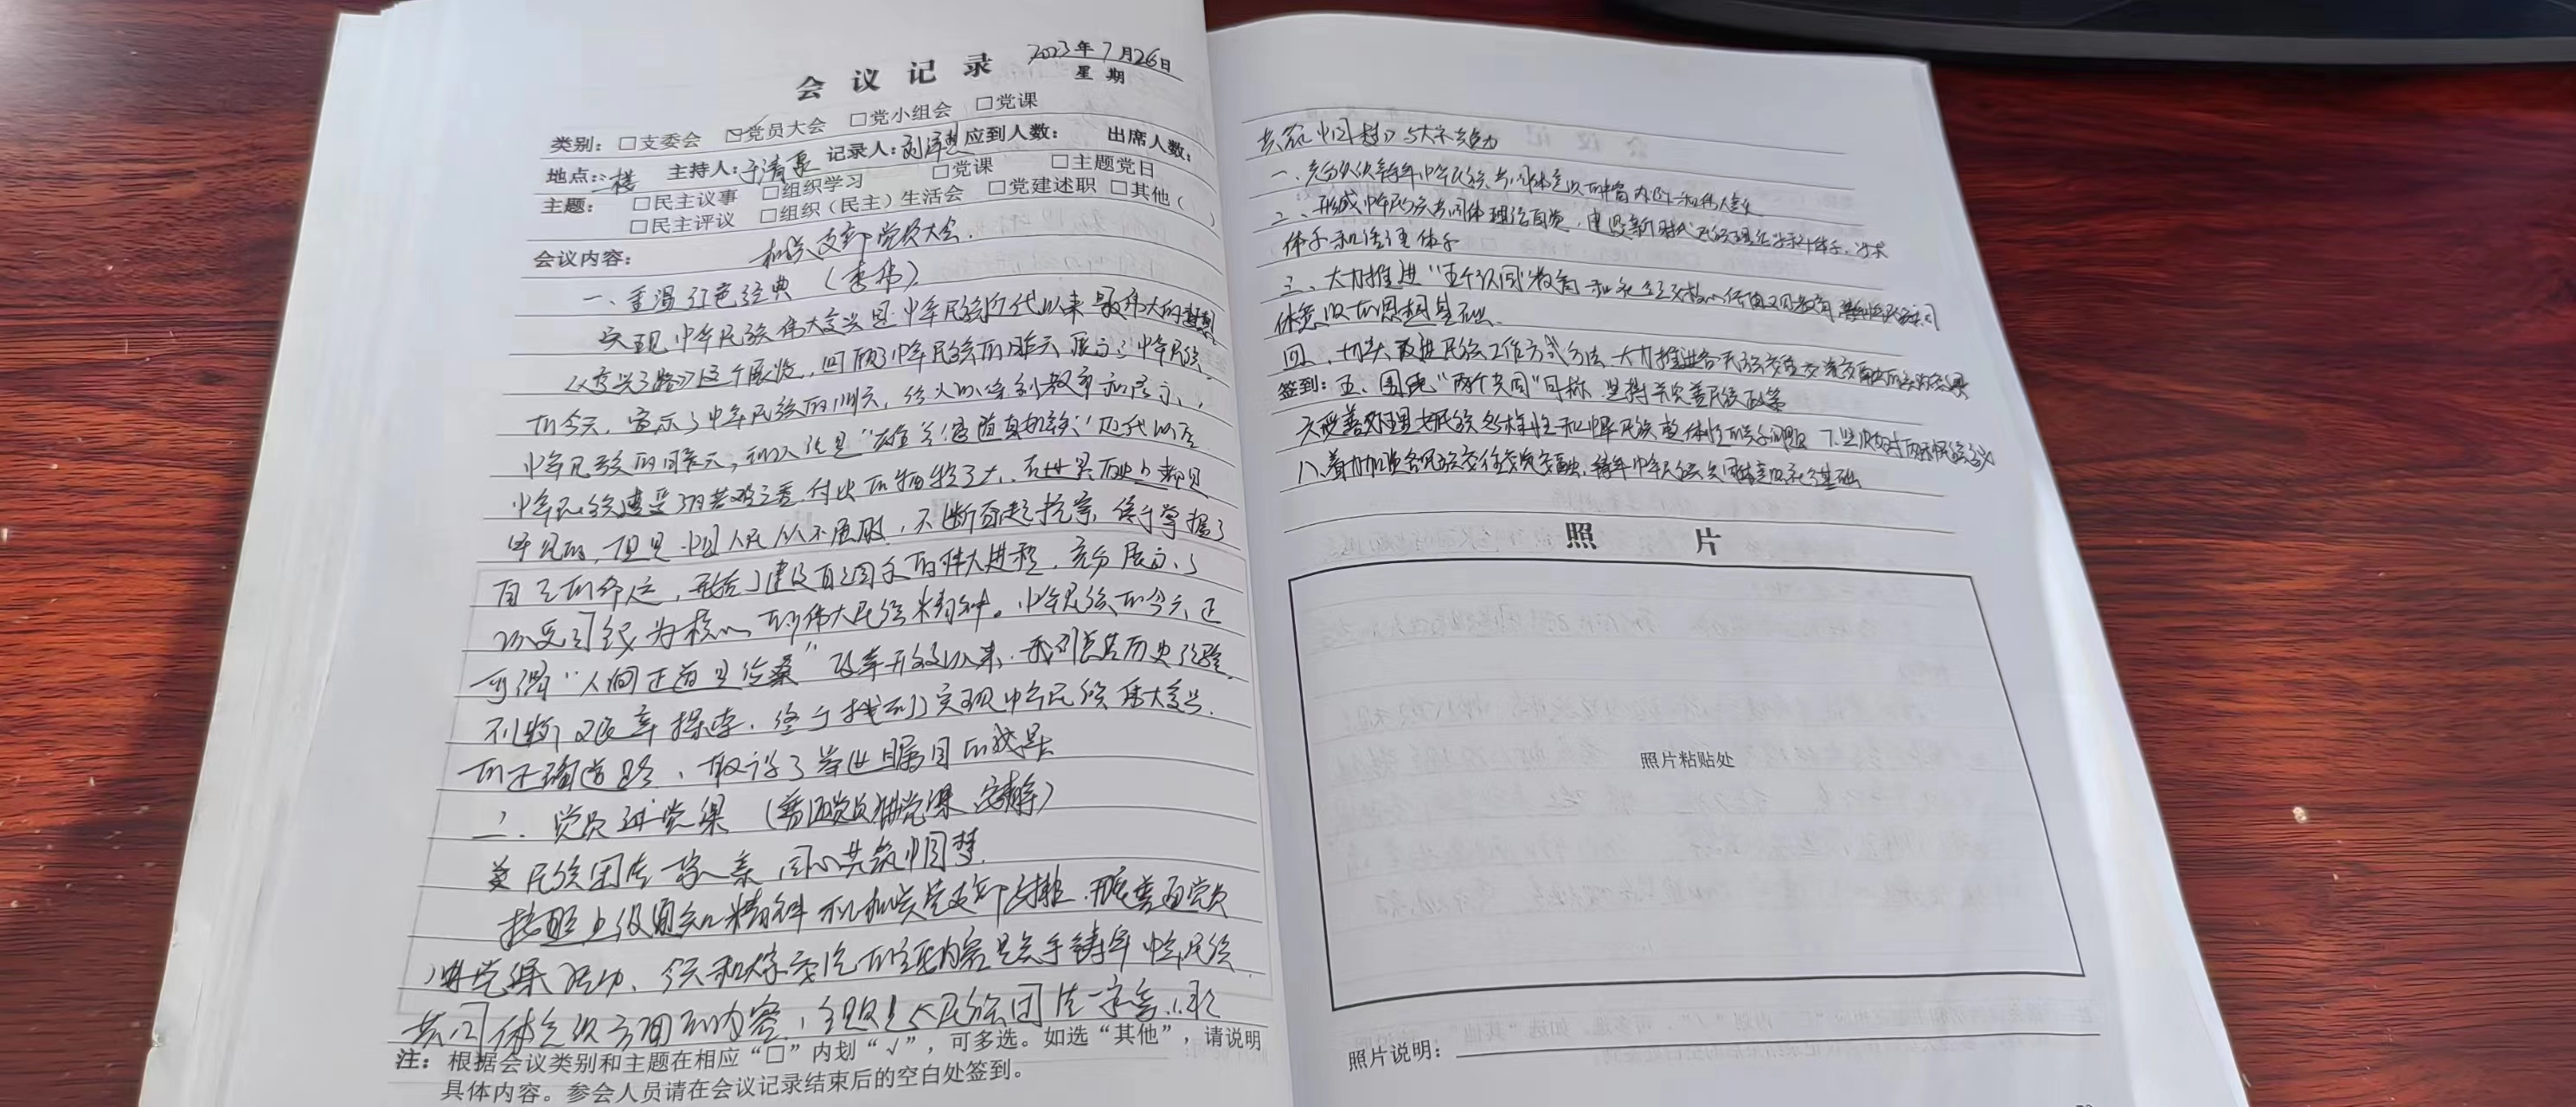 会议记录
2023年7月26日
星期
类别：□支委会 ☑党员大会 □党小组会 □党课
地点：三楼 主持人： 记录人： 应到人数： 出席人数：
主题： □民主议事 □组织学习 □党课 □主题党日
□民主评议 □组织（民主）生活会 □党建述职 □其他（ ）
会议内容： 机关支部党员大会.
一、重温红色经典（李伟）
实现中华民族伟大复兴是中华民族近代以来最伟大的梦想
《复兴之路》这个展览，回顾了中华民族的昨天，展示了中华民族
的今天，宣示了中华民族的明天，给人以深刻教育和启示，
中华民族的昨天，可以说是“雄关漫道真如铁”近代以后
中华民族遭受的苦难之重，付出的牺牲之大，在世界历史上都是
罕见的，但是，中国人民从不屈服，不断奋起抗争，终于掌握了
自己的命运，开启了建设自己国家的伟大进程，充分展示了
以爱国主义为核心的伟大民族精神。中华民族的今天，正
可谓“人间正道是沧桑”改革开放以来，我们总结历史经验，
不断艰辛探索，终于找到了实现中华民族伟大复兴
的正确道路，取得了举世瞩目的成果
二、党员讲党课（普通党员讲党课 安静）
民族团结一家亲 同心共筑中国梦.
按照上级通知精神和机关党支部安排，开展普通党员
讲党课活动，今天和大家交流的主要内容是关于铸牢中华民族
共同体意识方面的内容，主题是《民族团结一家亲，同心
注：根据会议类别和主题在相应“□”内划“√”，可多选。如选“其他”，请说明
具体内容。参会人员请在会议记录结束后的空白处签到。
共筑中国梦》与大家共勉
一、充分认识铸牢中华民族共同体意识的丰富内涵和伟大意义
二、形成中华民族共同体理论自觉，建设新时代民族理论学科体系、学术
体系和话语体系
三、大力推进“五个认同”教育和社会主义核心价值观教育，铸牢中华民族共同
体意识的思想基础.
四、切实改进民族工作方式方法，大力推进各民族交往交流交融
签到：五、围绕“两个共同”目标 坚持并完善民族政策
六、妥善处理好民族多样性和中华民族整体性的关系问题 七、坚决反对两种民族主义
八、着力加强各民族交往交流交融，铸牢中华民族共同体意识社会基础
照 片
照片粘贴处
照片说明：